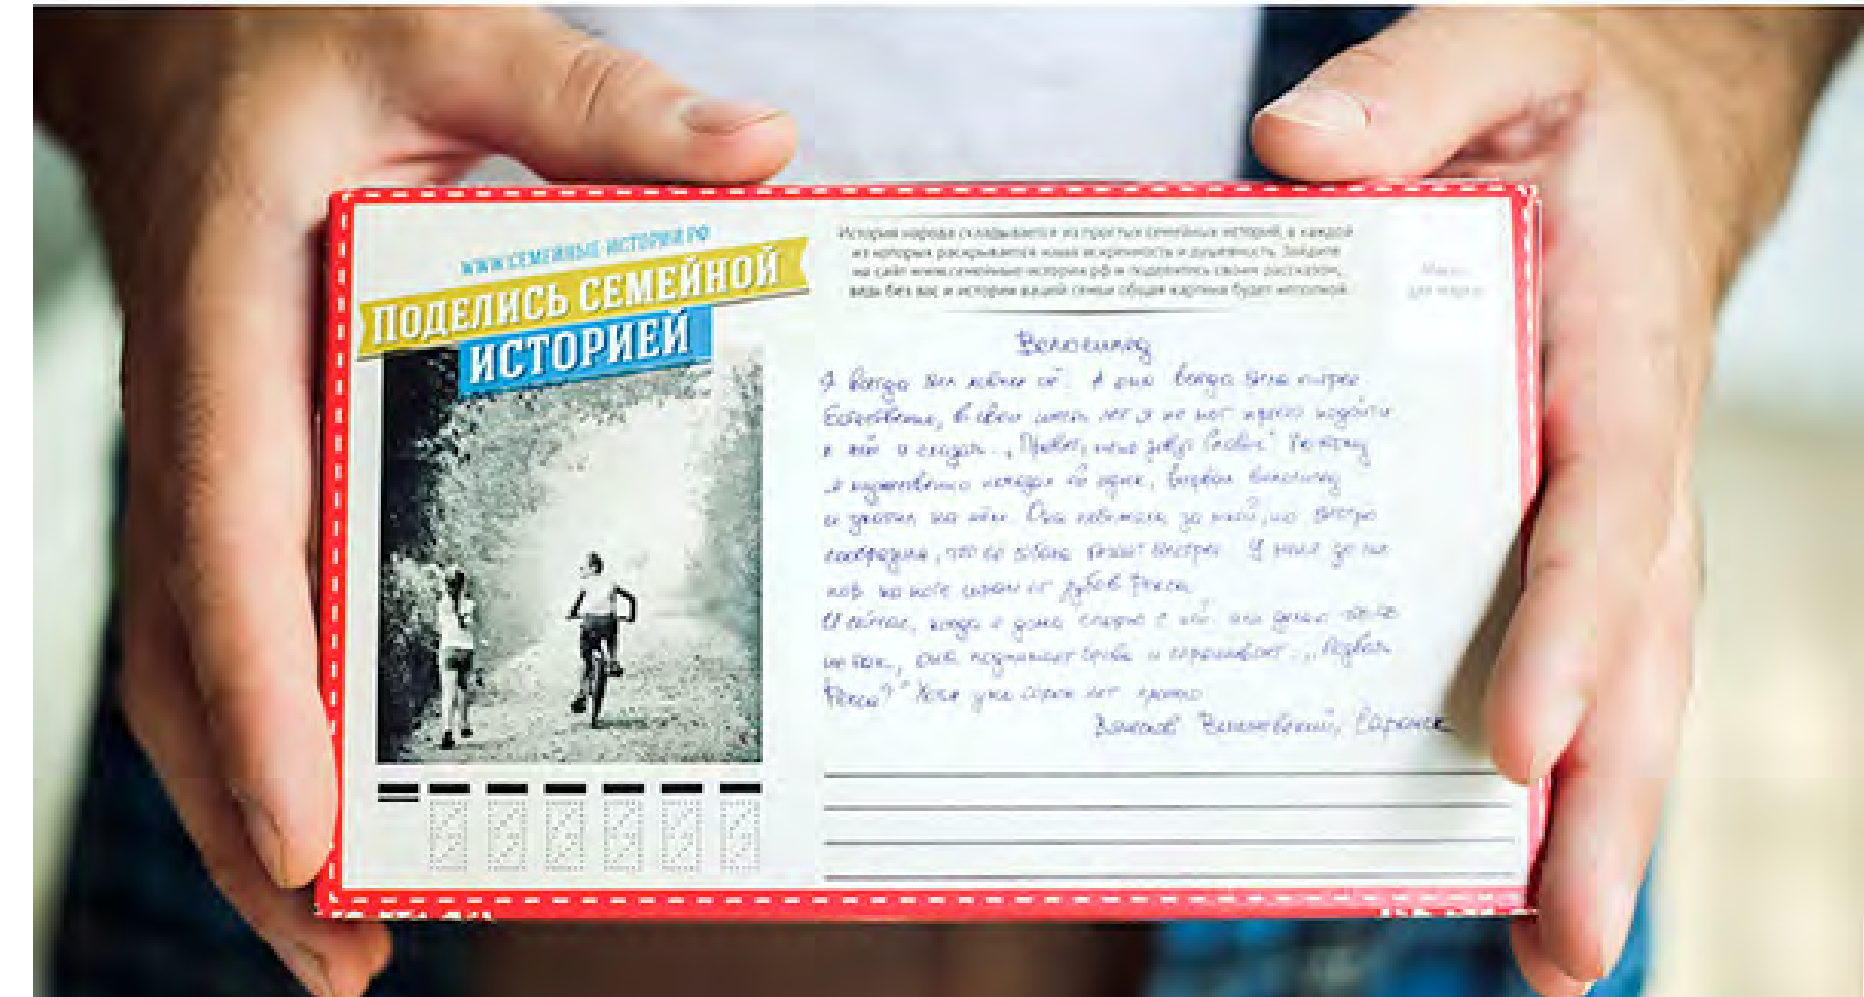 WWW.СЕМЕЙНЫЕ-ИСТОРИИ.РФ
ПОДЕЛИСЬ СЕМЕЙНОЙ
ИСТОРИЕЙ
История народа складывается из простых семейных историй, в каждой
из которых раскрывается наша искренность и душевность. Зайдите
на сайт www.семейные-истории.рф и поделитесь своим рассказом,
ведь без вас и истории вашей семьи общая картина будет неполной.
Место
для марки
Велосипед
Я всегда был её. А она всегда была
Естественно, в свои шесть лет я не мог просто подойти
к ней и сказать: „Привет, меня зовут Поэтому
я её одну, велосипед
и укатил на нём. Она побежала за мной, но быстро
сообразила, что её собака бегает быстрее. У меня до сих
пор на ноге шрам от зубов Рекса.
И сейчас, когда я дома спорю с ней или делаю что-то
не так, она поднимает брови и спрашивает: „Позвать
Рекса?" Хотя уже сорок лет прошло.
Саранск